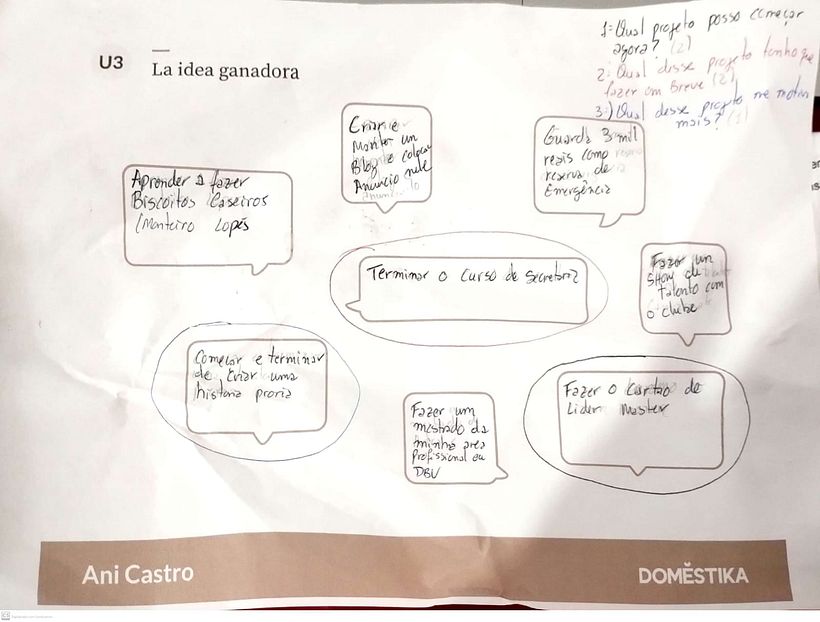 U3
La idea ganadora
1=Qual projeto posso começar
agora? (2)
2= Qual desse projeto tenho que
fazer em Breve (2)
3=) Qual desse projeto me motiva
mais? (1)
Criar e
Manter un
Blog e colocar
Anuncio nele
Guarda 3 mil
reais como
reserva de
Emergência
Aprender a fazer
Biscoitos Caseiros
(Monteiro Lopes
Terminar o curso de
Fazer un
show de
talento com
o clube
Começar e terminar
de criar uma
historia proria
Fazer um
mestrado da
minha area
Profissional ou
DBV
Fazer o Cartão de
Lider Master
Ani Castro
DOMĔSTIKA